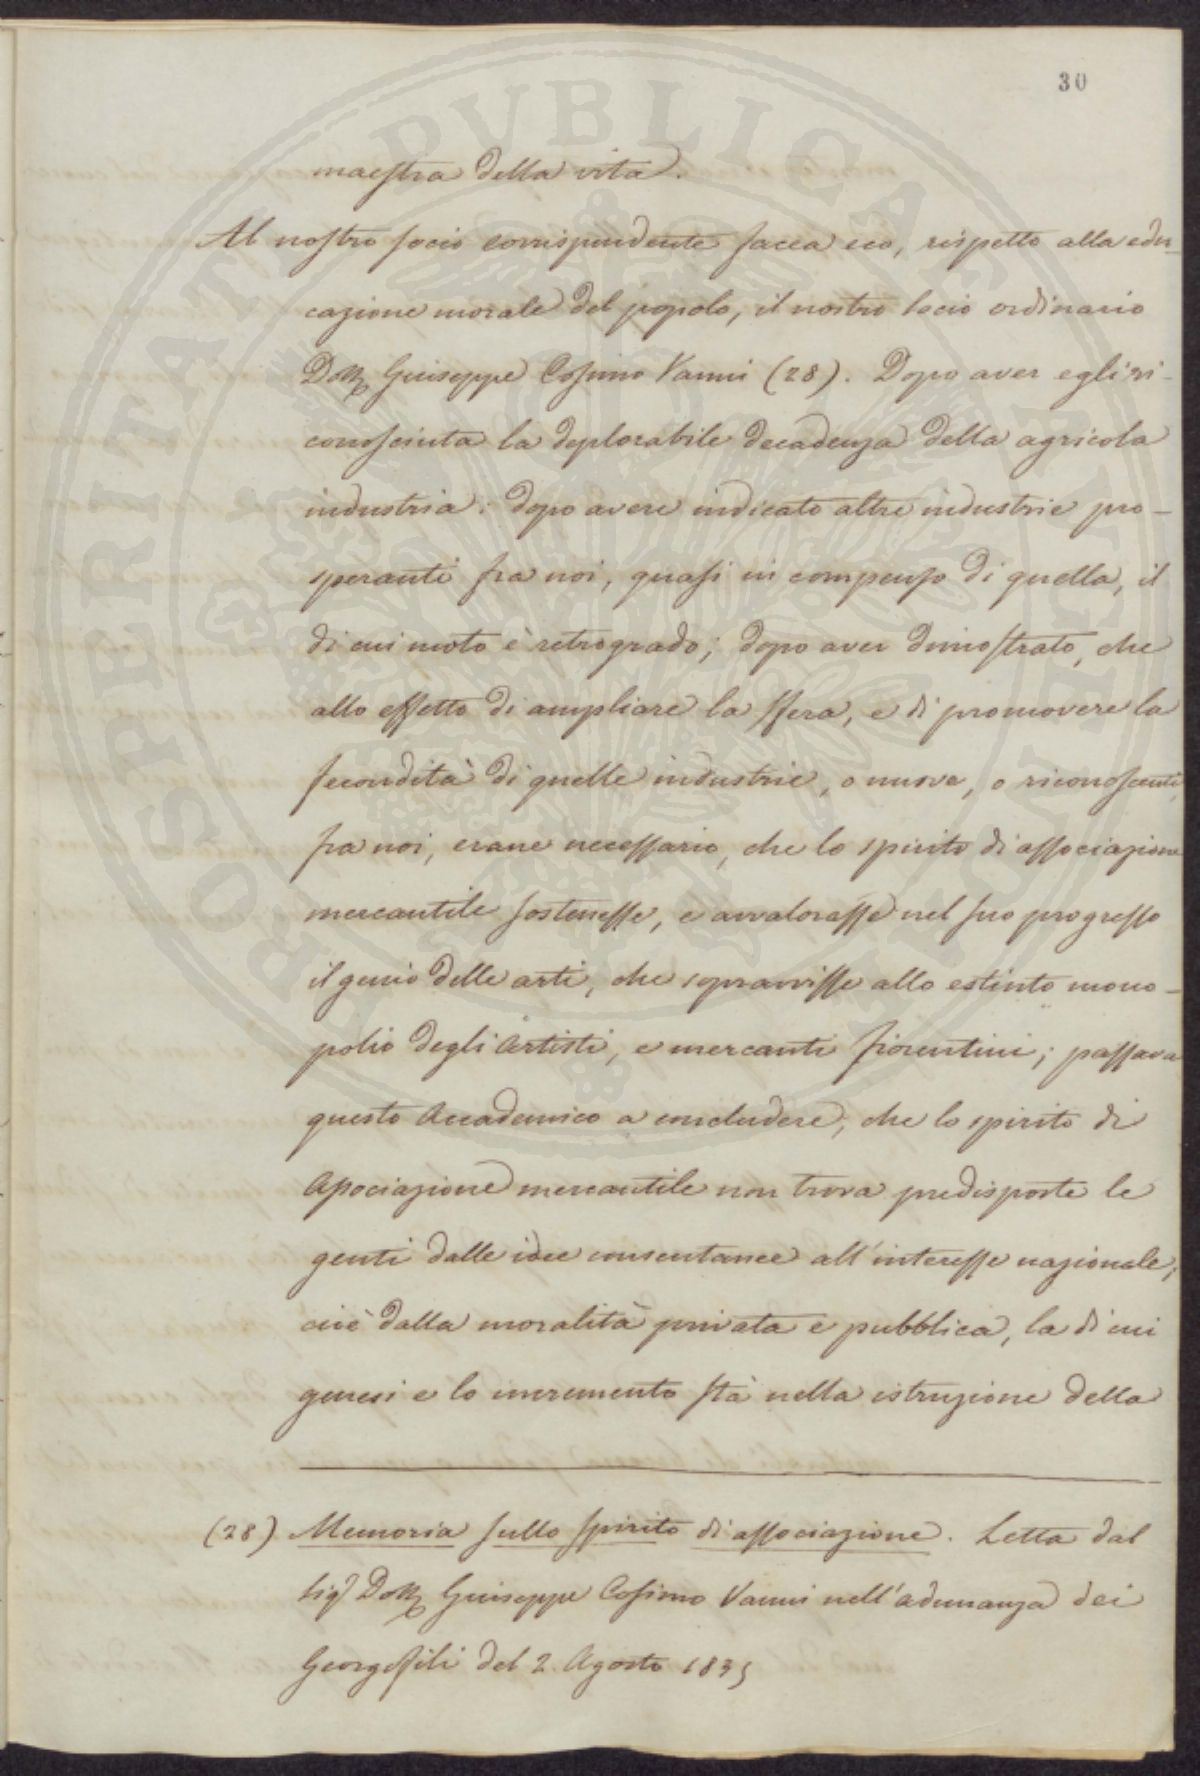 30
maestra della vita.
Al nostro socio corrispondente facea eco, rispetto alla edu-
cazione morale del popolo, il nostro socio ordinario
Dott. Giuseppe Cosimo Vanni (28). Dopo aver egli ri-
conosciuta la deplorabile decadenza della agricola
industria: dopo avere indicato altre industrie pro-
speranti fra noi, quasi in compenso di quella, il
di cui moto è retrogrado; dopo aver dimostrato, che
allo effetto di ampliare la sfera, e di promovere la
fecondità di quelle industrie, o nuove, o riconosciute
fra noi, erane necessario, che lo spirito di associazione
mercantile sostenesse, e avvalorasse nel suo progresso
il genio delle arti, che sopravvisse allo estinto mono-
polio degli Artisti, e mercanti fiorentini; passava
questo Accademico a concludere, che lo spirito di
Associazione mercantile non trova predisposte le
genti dalle idee consentanee all'interesse nazionale,
cioè dalla moralità privata e pubblica, la di cui
genesi e lo incremento stà nella istruzione della
(28) Memoria sullo spirito di associazione. Letta dal
Sigr Dott. Giuseppe Cosimo Vanni nell'adunanza dei
Georgofili del 2. Agosto 1835
PROSPERITATI PUBLICAE AUGENDAE